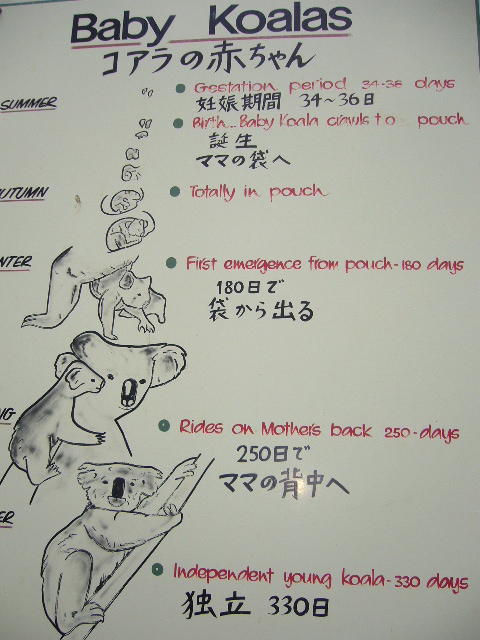 Baby Koalas
コアラの赤ちゃん
SUMMER
Gestation period 34-36 days
妊娠期間 34~36日
Birth...Baby Koala crawls to pouch
誕生
ママの袋へ
UTUMN
Totally in pouch
NTER
First emergence from pouch-180 days
180日で
袋から出る
NG
Rides on Mother's back 250-days
250日で
ママの背中へ
ER
Independent young koala-330 days
独立 330日